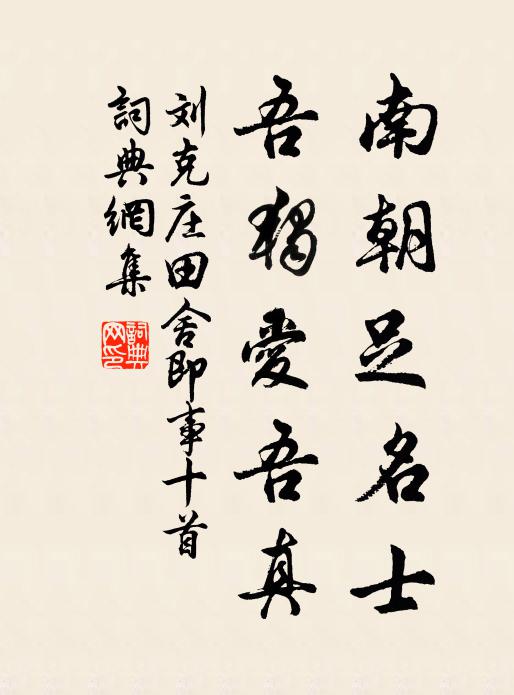 南朝足名士
吾獨愛吾真
刘克庄田舍即事十首
詞典網集
詞典網印